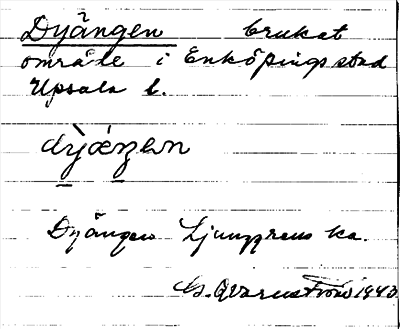 Dyängen brukat
område i Enköpings stad
Upsala l.
dy̆äŋən
Dyängen Ljunggrens ka.
G. Qvarnström 1940